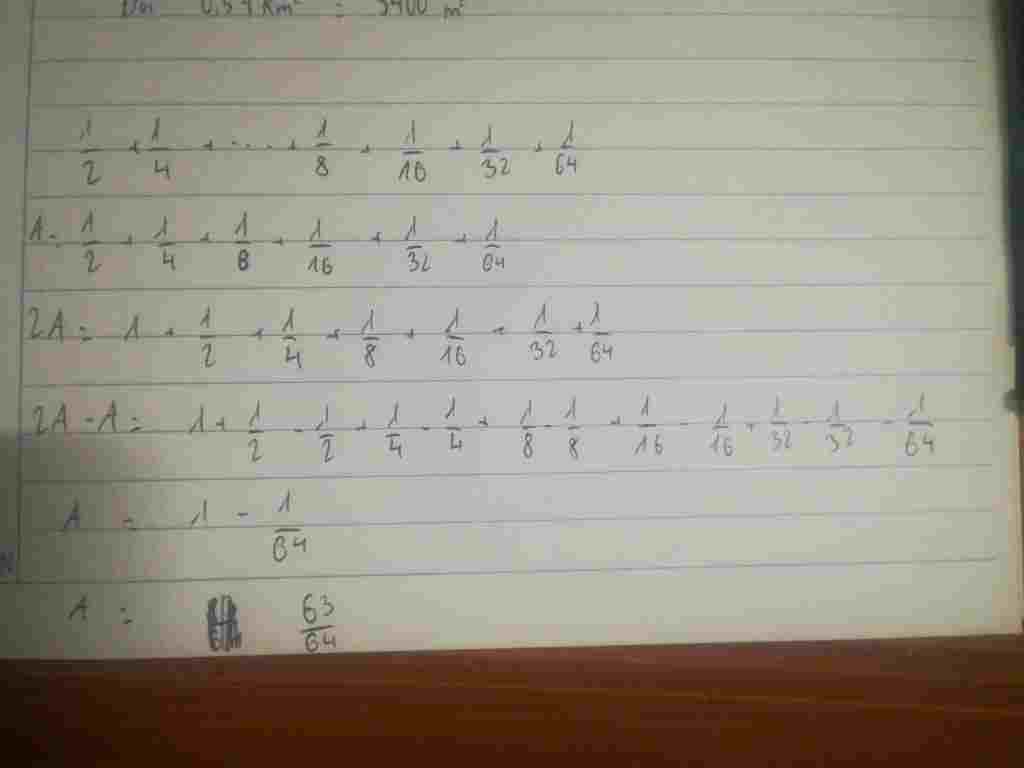 0,54 Km² = 5400 m²
1/2 + 1/4 + .... + 1/8 + 1/16 + 1/32 + 1/64
A = 1/2 + 1/4 + 1/8 + 1/16 + 1/32 + 1/64
2A = 1 + 1/2 + 1/4 + 1/8 + 1/16 + 1/32 + 1/64
2A - A = 1 + 1/2 - 1/2 + 1/4 - 1/4 + 1/8 - 1/8 + 1/16 - 1/16 + 1/32 - 1/32 - 1/64
A = 1 - 1/64
A = 63/64